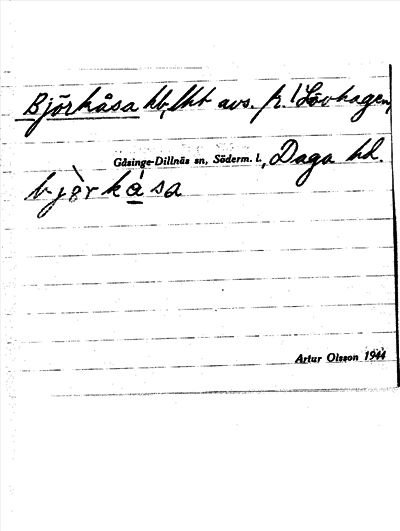 Björkåsa hb, lht avs. fr. Lövhagen,
Gåsinge-Dillnäs sn, Söderm. l., Daga hd.
bjö̀rkǻsa
Artur Olsson 1944